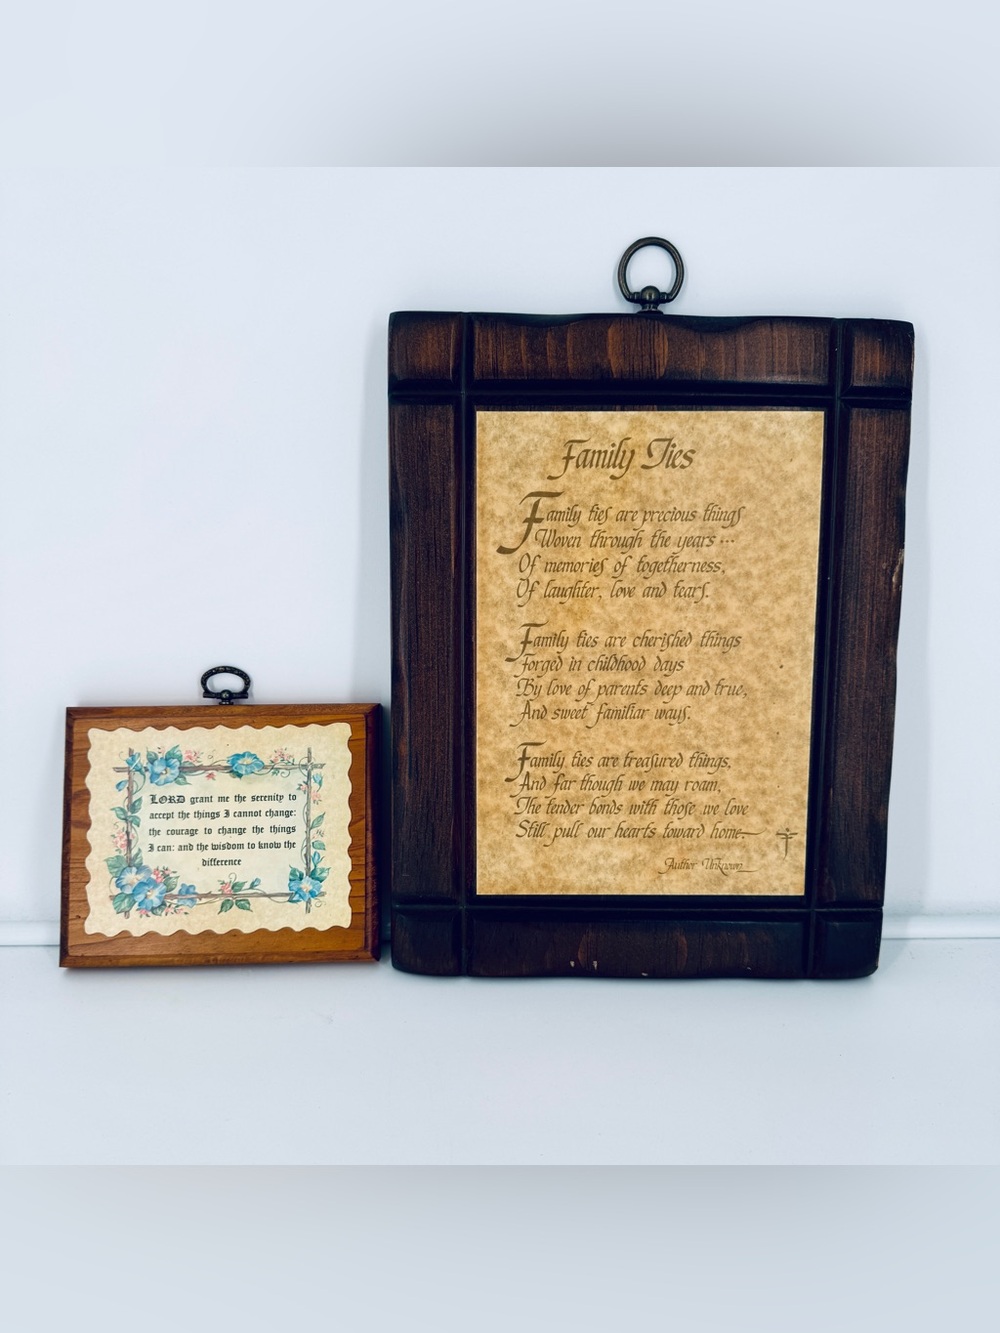 LORD grant me the serenity to
accept the things I cannot change:
the courage to change the things
I can: and the wisdom to know the
difference
Family Ties
Family ties are precious things
Woven through the years ...
Of memories of togetherness,
Of laughter, love and tears.
Family ties are cherished things
Forged in childhood days
By love of parents deep and true,
And sweet familiar ways.
Family ties are treasured things,
And far though we may roam,
The tender bonds with those we love
Still pull our hearts toward home
Author Unknown